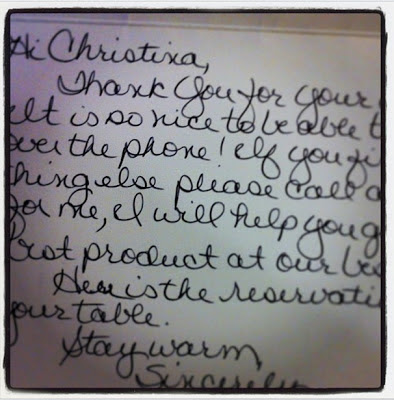 Hi Christina,
Thank You for your
It is so nice to be able t
over the phone! If you fi
thing else please call a
for me, I will help you g
best product at our be
Here is the reservati
your table.
Stay warm,
Sincerely